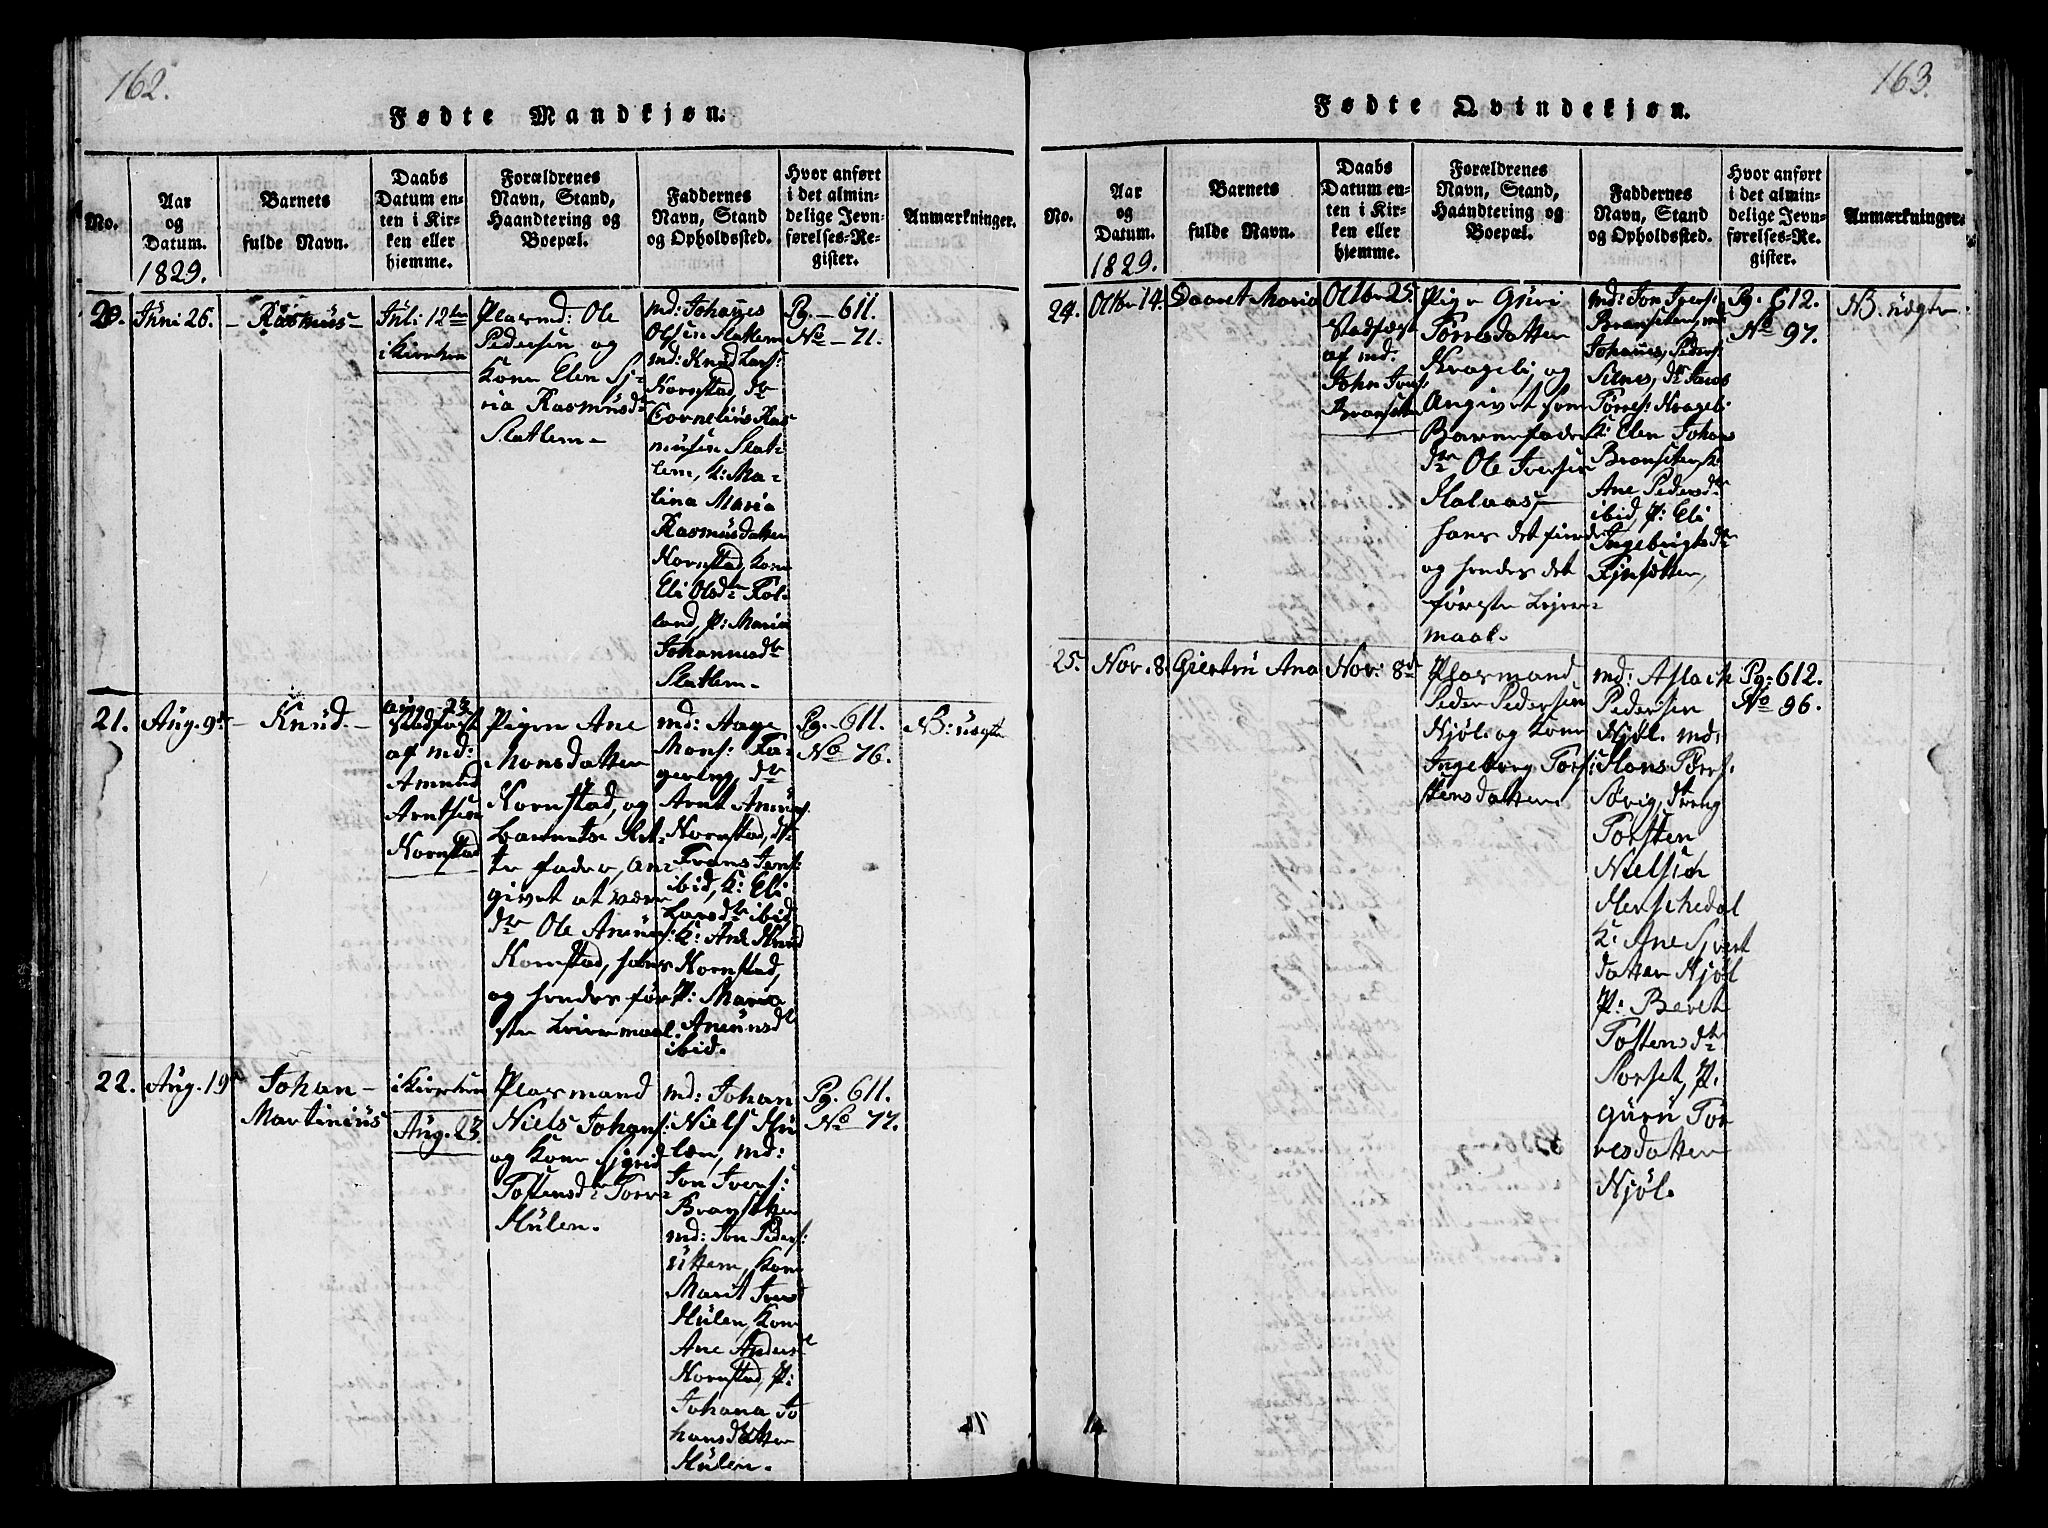 162.
Fødte Mandkjøn.
No.
Aar
og
Datum.
1829.
Barnets
fulde Navn.
Daabs
Datum en-
ten i Kir-
ken eller
hjemme.
Forældrenes
Navn, Stand,
Haandtering og
Boepæl.
Faddernes
Navn, Stand
og Opholdssted.
Hvor anført
i det almin-
delige Jevn-
førelses-Re-
gister.
Anmærkninger.
20.
Juni 26.
Rasmus
Jul: 12te
i Kirken
Pladsmd: Ole
Pedersen og
Kone Elen Sj-
ria Rasmusdr
Slatlem
md: Johanes
Olsen Slatlem
md: Knud Lars:
Kornstad, dr
Cornelius Ras
musen Slat-
lem, K: Ma-
lina Maria
Rasmusdatter
Kornstad, Kone
Eli Olsdr Fol-
land, P: Maria
Johannesdr
Slatlem
Pg. 611.
No 71.
21.
Aug. 9de
Knud
Aug. 23
Stadfæst
af md:
Amund
Arntsen
Kornstad
Pigen Ane
Monsdatter
Kornstad, og
Barnets Æt-
te fader, an-
givet at være
dr Ole Amuns:
Kornstad, hans
og hendes før
ste Leiermaal.
md: Aage
Mons: Fa-
gereng, dr
Arnt Amuns:
Kornstad, dr
Frans Jens:
ibid, K: Eli
Larsdr ibid
K: Ane Knud
Kornstad,
P: Maria
Amunsdr
ibid.
Pg. 611.
No 76.
NB: uægte
22.
Aug. 19
Johan
Martinius
i Kirken
Aug. 23.
Pladsmand
Niels Johans:
og Kone Sigrid
Tostensdr Torv-
Hulen.
md: Johan
Niels Hu
læn, md:
Jon Ivers:
Bransether
md: Jon Peders:
Uttem, Kone
Marit Ivers
Hulen, Kone
Ane Anders
Kornstad, P:
Johana Jo
hansdatter
Hulen.
Pg. 611.
No 77.
163.
Fødte Qvindekjøn.
No.
Aar
og
Datum.
1829.
Barnets
fulde Navn.
Daabs
Datum en-
ten i Kir-
ken eller
hjemme.
Forældrenes
Navn, Stand,
Haandtering og
Boepæl.
Faddernes
Navn, Stand
og Opholdssted.
Hvor anført
i det almin-
delige Jevn-
førelses-Re-
gister.
Anmærkninger.
24.
Octbr 14.
Maria
Octbr 25.
Stadfæst
af md.
John Ivers:
Branset
Pige Guri
Torresdatter
Krageli, og
Angivet som
Barnefader
dr Ole Iversen
Halaas
hans det fierde
og hendes det
første Lejer-
maal.
md: Jon Ivers:
Branseter, md
Johanes, Peders:
Silnes, dr Jacob
Torres: Krageli
K: Elen Johans
Branseter, K:
Ane Pedersdr
ibid, P: Eli
Ingebrigtsdr
Pg. 612.
No 97.
NB. uægte
25.
Nov. 8.
Giertru Ana
Nov: 8de
Pladsmand
Peder Pedersen
Kjøl og Kone
Ingeborg Tors-
stensdatter
md: Aslack
Pedersen
Kjøl. md:
Hans Torres:
Sørig, dreng
Torsten
Nielsen
Herschedal
K: Ane Sjvert
datter Kjøl
P: Beret
Tostensdtr
Sorset, P:
Guru Tor
resdatter
Kjøl.
Pg: 612.
No 96.